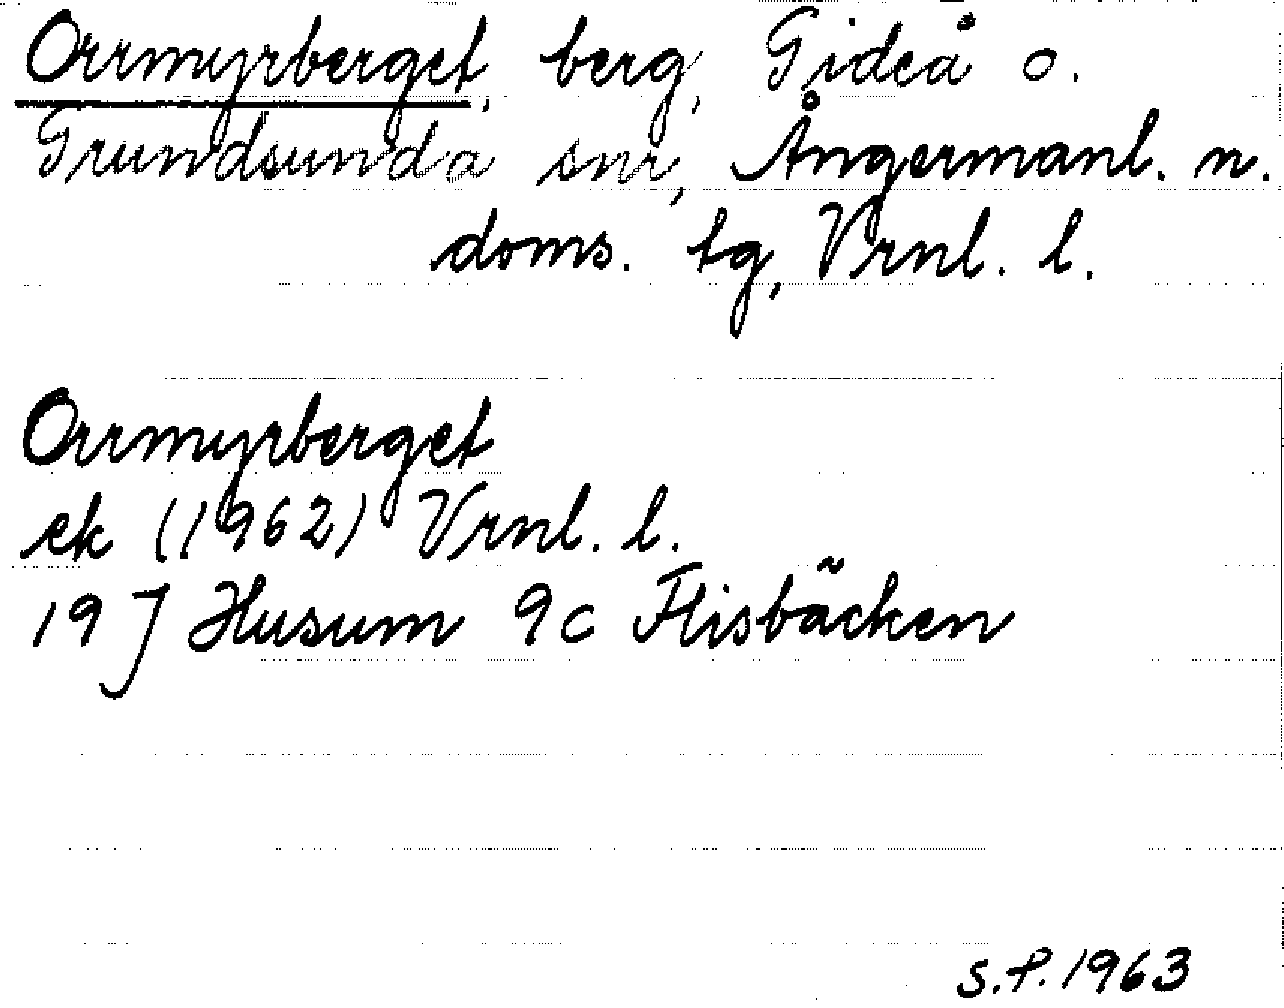 Orrmyrberget, berg, Gideå o.
Grundsunda snr, Ångermanl. n.
doms. tg, Vrnl. l.
Orrmyrberget
ek (1962) Vrnl. l.
19 J Husum 9c Flisbäcken
S.P. 1963